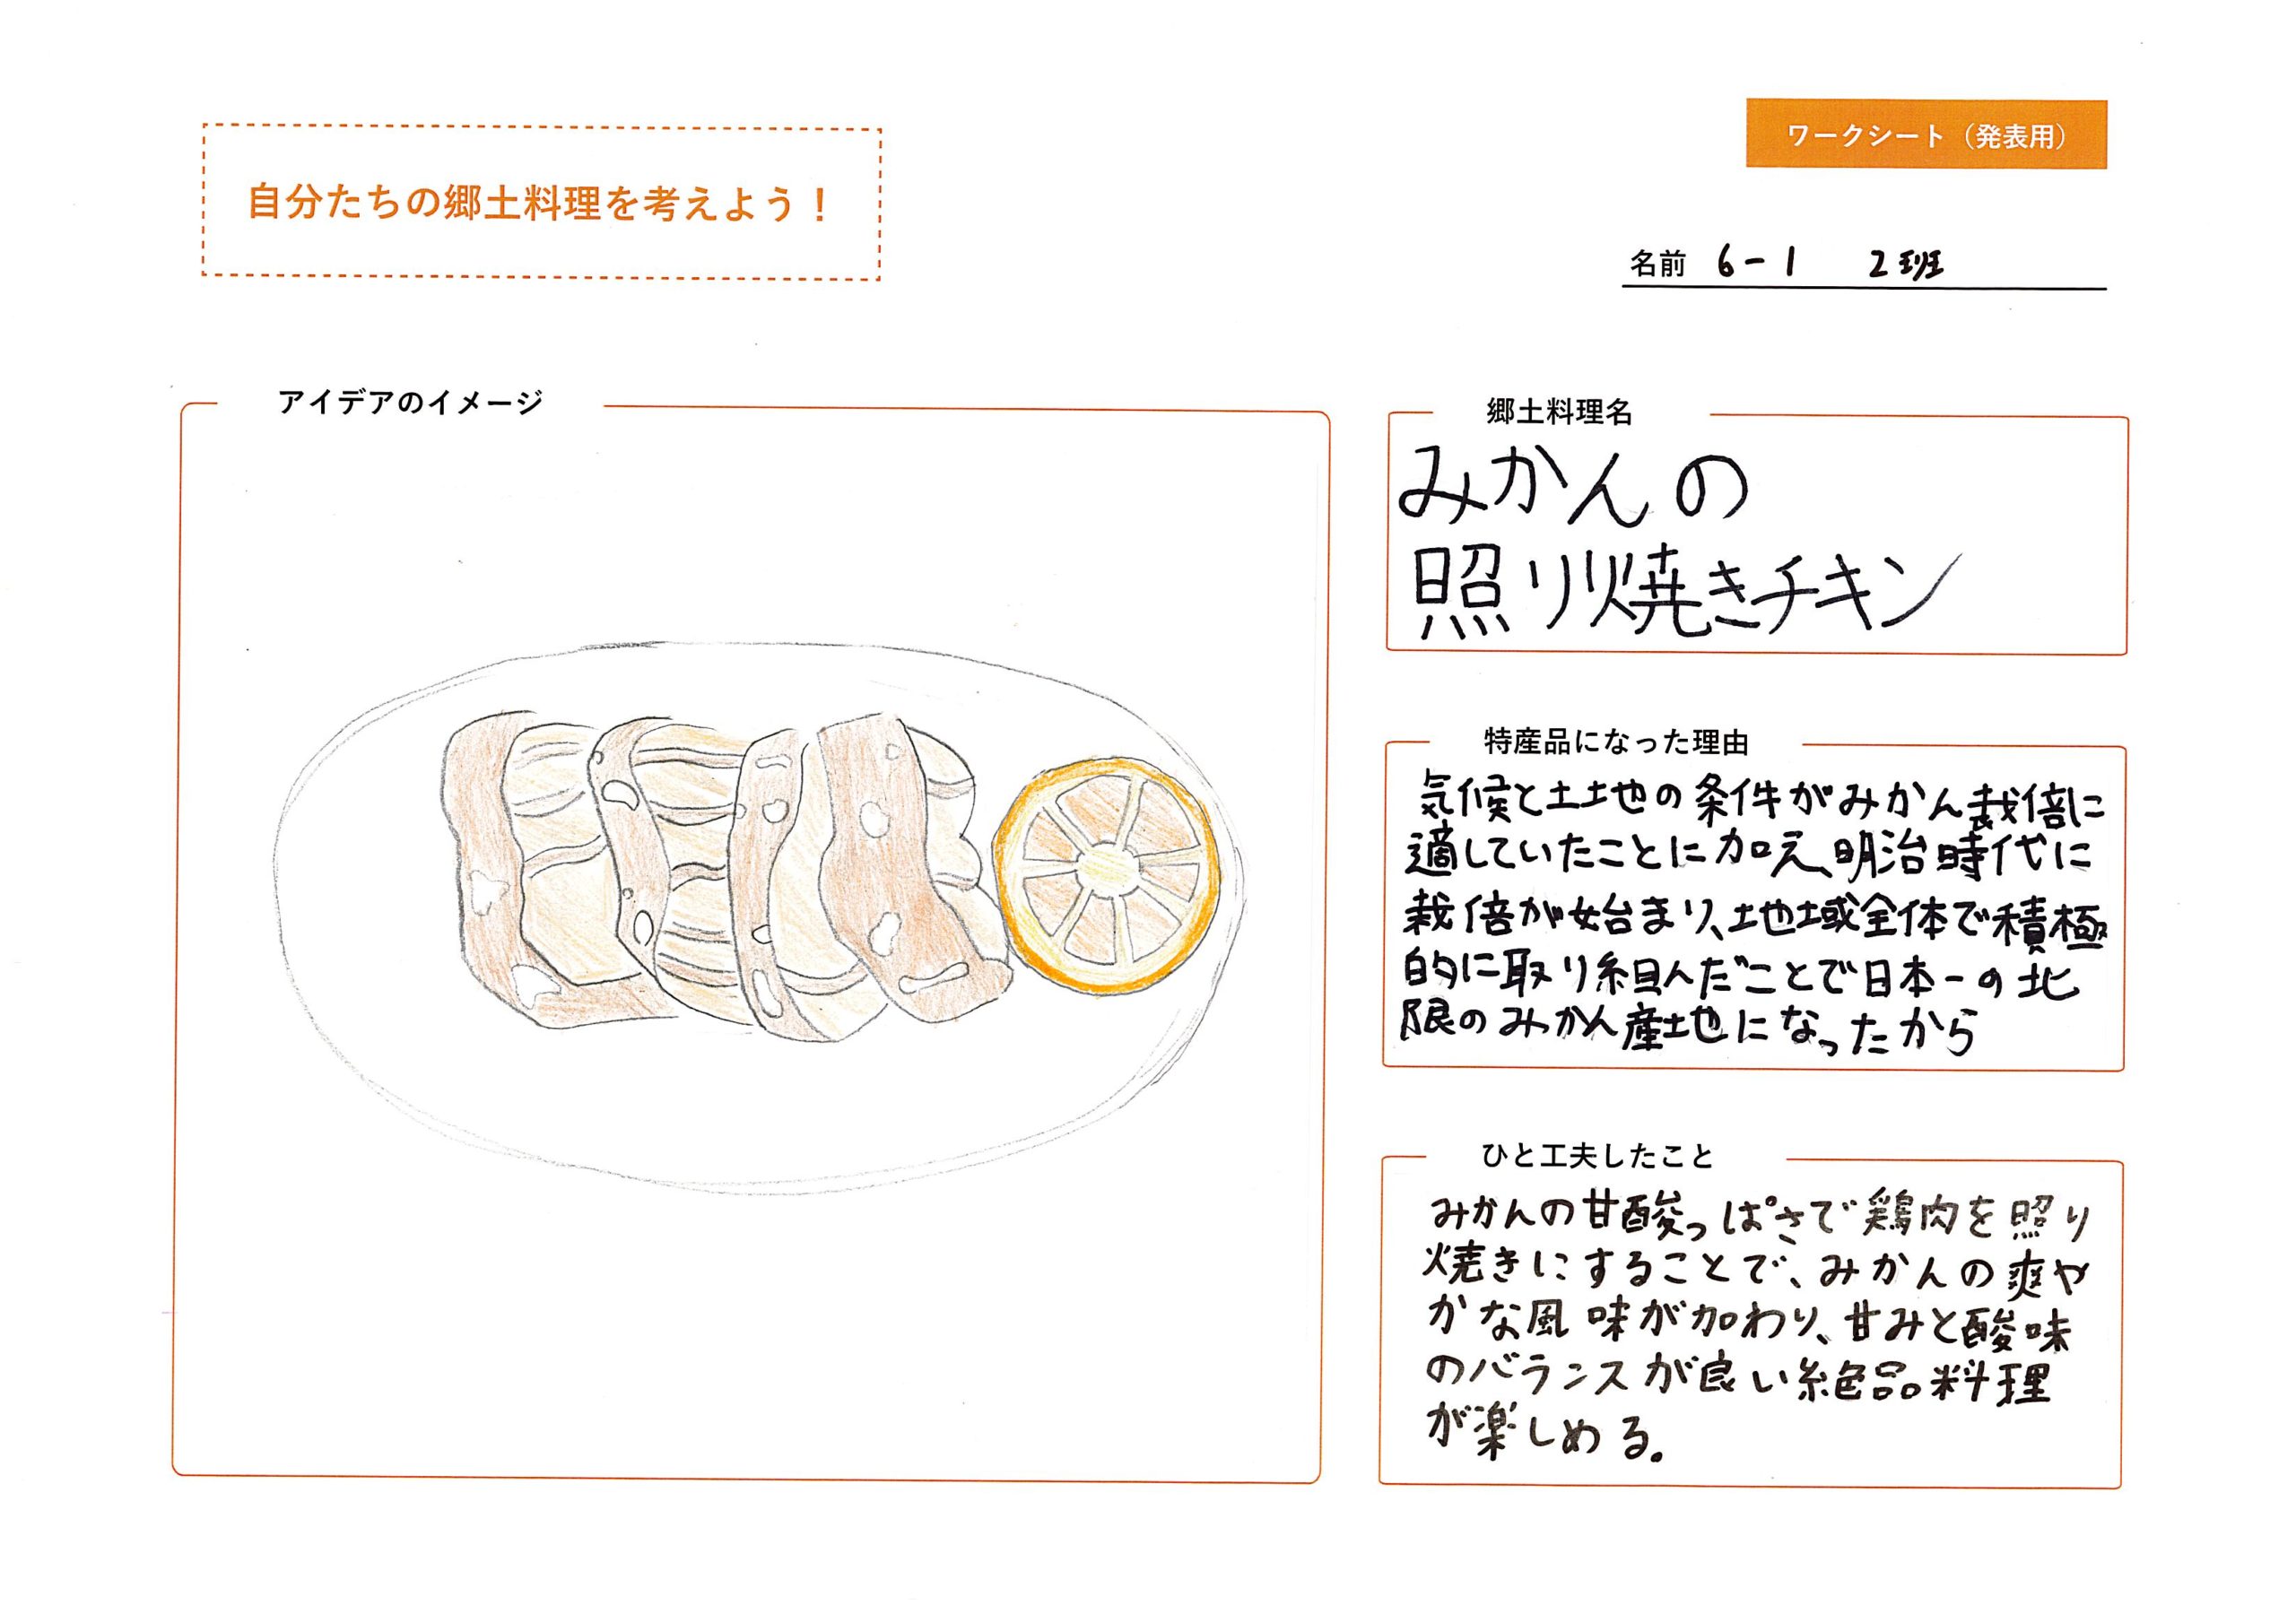 ワークシート（発表用）
自分たちの郷土料理を考えよう！
名前 6-1 2班
アイデアのイメージ
郷土料理名
みかんの
照り焼きチキン
特産品になった理由
気候と土地の条件がみかん栽倍に
適していたことに加え、明治時代に
栽倍が始まり、地域全体で積極
的に取り組んだことで日本一の北
限のみかん産地になったから
ひと工夫したこと
みかんの甘酸っぱさで鶏肉を照り
焼きにすることで、みかんの爽や
かな風味が加わり、甘みと酸味
のバランスが良い絶品料理
が楽しめる。